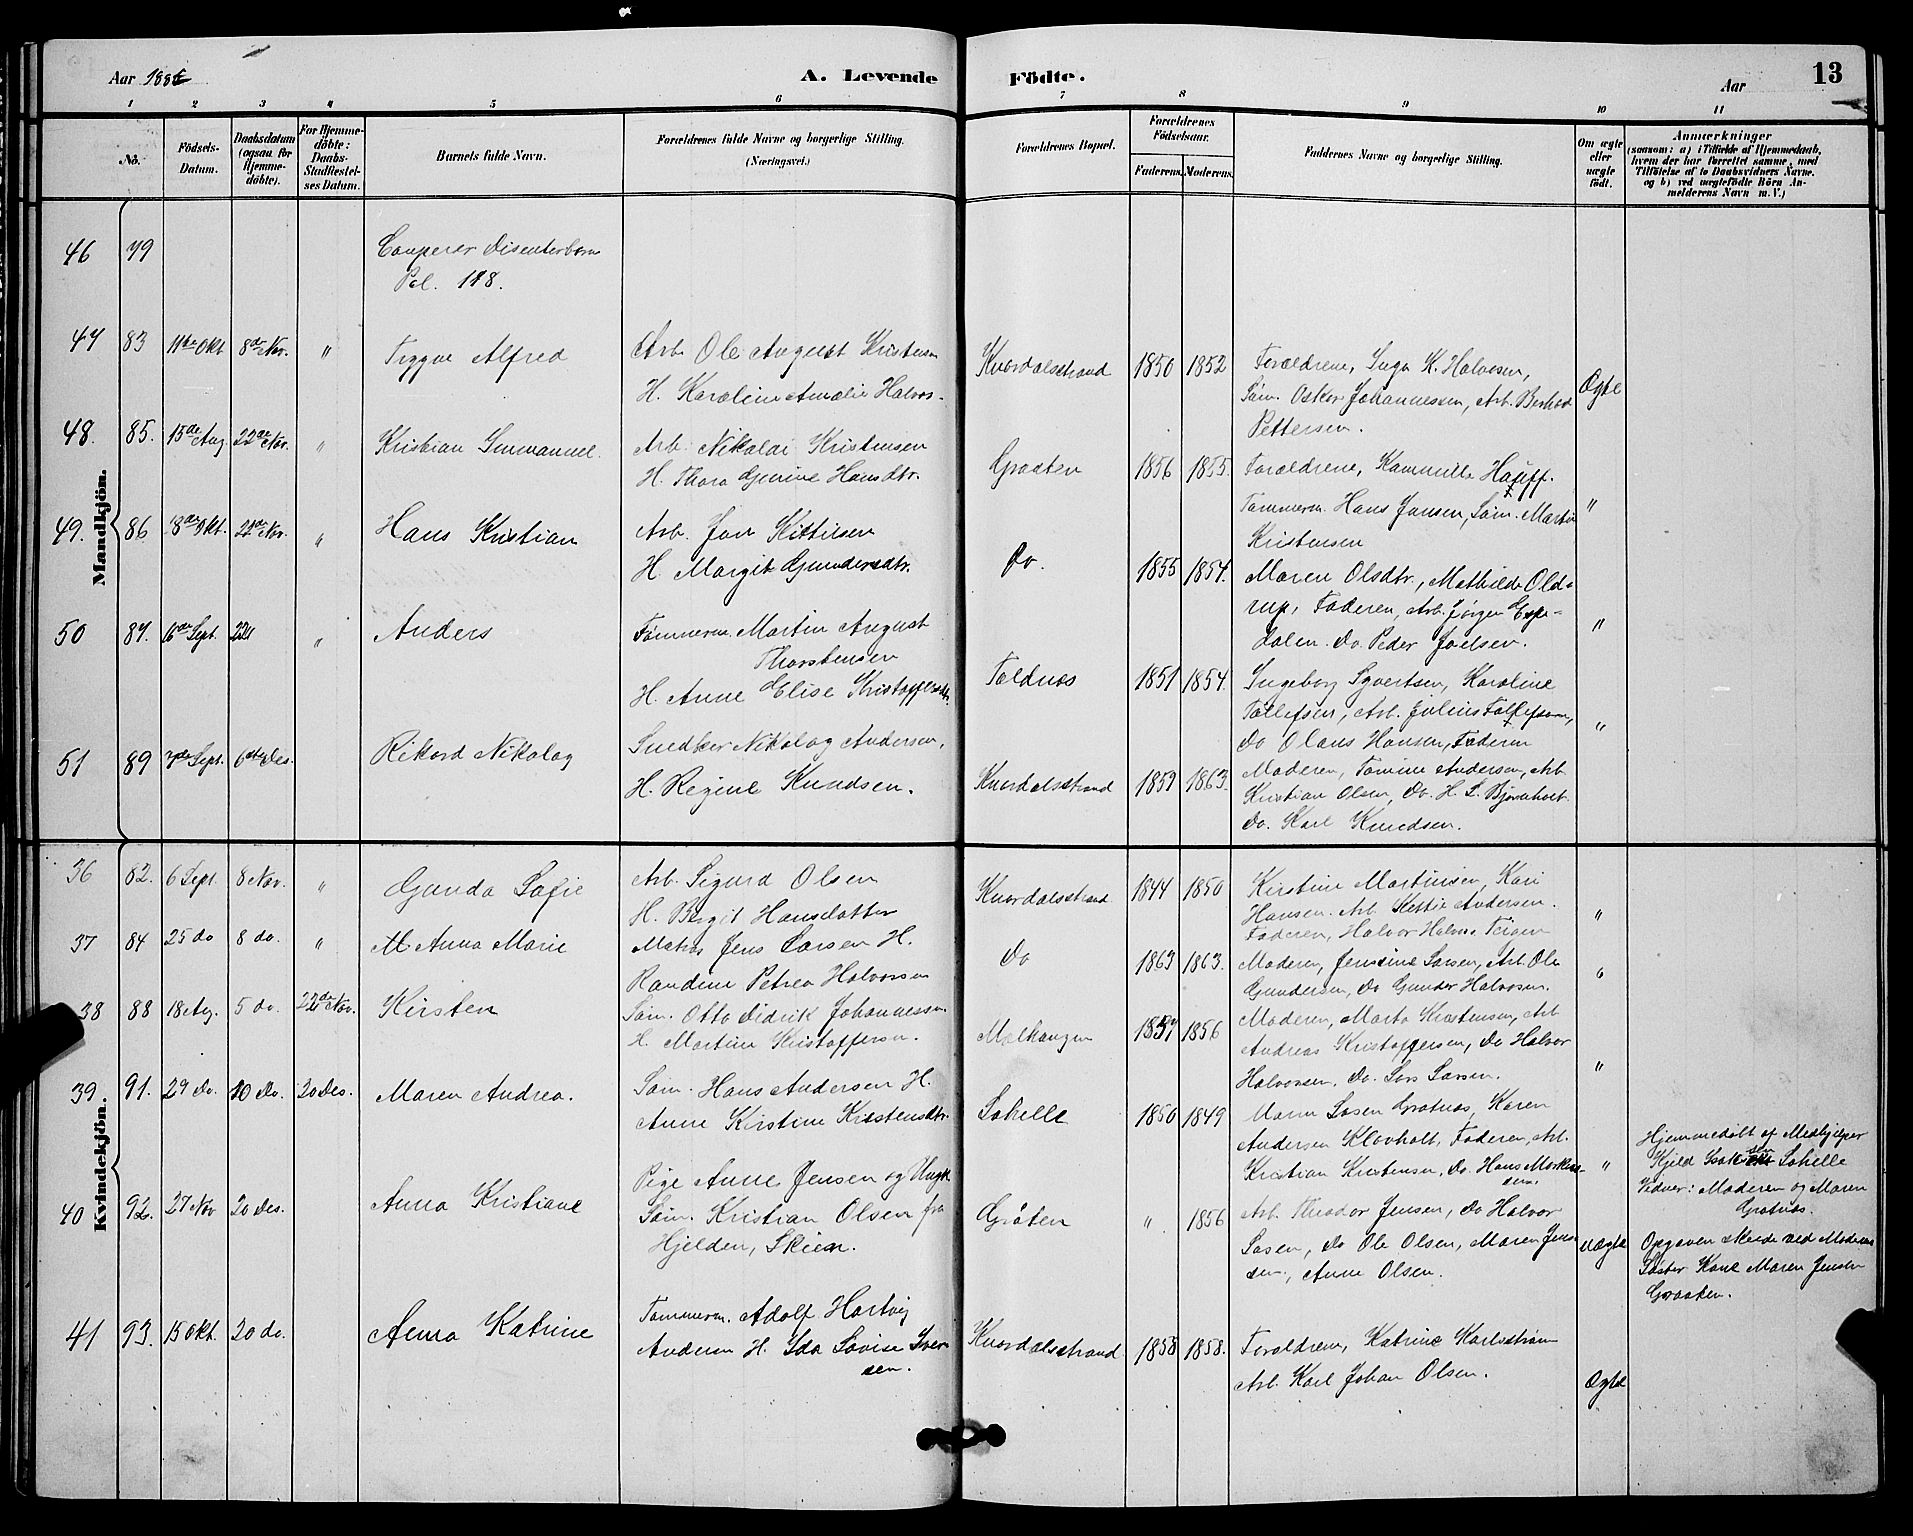 Aar 188
A. Levende
Födte.
Aar
13
1 2 3 4 5 6 7 8 9 10 11
No.
Födsels-
Datum.
Daabsdatum
(ogsaa for
Hjemme-
döbte).
For Hjemme-
döbte:
Daabs-
Stadfæstel-
ses Datum.
Barnets fulde Navn.
Forældrenes fulde Navne og borgerlige Stilling.
(Næringsvei.)
Forældrenes Bopæl.
Forældrenes
Födselsaar.
Faderens. Moderens.
Faddernes Navne og borgerlige Stilling.
Om ægte
eller
uægte
födt.
Anmærkninger
(saasom: a) i Tilfælde af Hjemmedaab,
hvem der har forrettet samme, med
Tilföielse af to Daabsvidners Navne.
og b) ved uægtefödte Börn An-
melderens Navn m. V.)
Mandkjön.
46 79 Disenterbarn
Pal. 118.
47 83 11te Okt 8de Nov. " Tryggve Alfred
Arb. Ole August Kristensen
H. Karoline Amalie Halvors.
Knardalsstrand 1850 1852
Forældrene, Inga K. Halvorsen,
Søm. Oskar Johannessen, Arb. Berhad
Pettersen.
Ægte
48. 85. 15de Aug 22de Nov. " Kristian Emmanuel.
Arb. Nikolai Kristensen
H. Thora Gurine Hansdtr.
Graaten 1856 1855.
Forældrene, Kammilla Hauff.
Tømmerm. Hans Jansen, Søm. Martin
Kristensen
"
49. 86 18de Okt. 22de Nov. " Hans Kristian
Arb. Jon Kittilsen
H. Margit Gundersdtr.
Do. 1855 1854.
Maren Olsdtr., Mathilde Old-
rup, Faderen, Arb. Jørgen Espe-
dalen. Do. Peder Joelsen.
"
50 87. 6de Sept. 22 " Anders
Tømmerm. Martin August
Thorstensen
H. Anne Elise Kristoffersdtr.
Foldnæs 1851 1854.
Ingeborg Syvertsen, Karoline
Tollefsen, Arb. Julius Tollefsen,
Do Olaus Hansen, Faderen
"
51 89 7de Sept. 6te Des. Rikord Nikolay
Snedker Nikolay Andersen,
H. Regine Knudsen.
Knardalsstrand 1859 1863.
Moderen, Tomine Andersen, Arb.
Kristian Olsen, Do. H. L. Bjørnholt
Do. Karl Knudsen.
Kvindekjön.
36 82. 6 Sept. 8 Nov. " Gunda Sofie
Arb. Sigurd Olsen
H. Birgit Hansdatter
Knardalsstrand 1844 1850
Kirstine Martinsen, Kari
Hansen. Arb. Kittil Andersen.
Faderen, Halvor Halvors.
"
37 84 25 do 8 do. " Anna Marie
Matros Jens Larsen H.
Randine Petrea Halvorsen
Do 1863 1863.
Moderen, Jensine Larsen, Arb. Ole
Gundersen, Do Gunder Halvorsen.
38 88 18 Aug. 5 do. 22de Nov. Kirsten
Søm. Otto Didrik Johannessen
H. Martine Kristoffersen.
1856
Moderen, Marta Kristensen, Arb
Andreas Kristoffersen, Do Halvor
Halvorsen, Do. Lars Larsen.
"
39 91. 29 Do. 10 Do. 20 Des. Maren Andrea.
Søm. Hans Andersen H.
Anne Kirstine Kristensdtr.
Løkelle 1850 1849
Maren Larsen Gratnæs, Karen
Andersen Klovholt, Faderen, Arb.
Kristian Kristensen, Do. Hans Morken-
sen.
"
Hjemmedøbt af Medhjælper
Kjeld Isaksen Løkelle
Vidner: Moderen og Maren
Gratnæs.
40 92. 27 Nov 20 Des. Anna Kristiane
Pige Anne Jensen og Ungk.
Søm. Kristian Olsen fra
Hjelden, Skien.
Gråten " 1856
Arb. Theodor Jensen, Do Halvor
Larsen, Do Ole Olsen, Maren Jen-
sen, Anne Olsen.
Uægte
Opgaven skede ved Moderens
Søster Kone Maren Jensen
Graaten.
41 93. 15 Okt. 20 do. Anna Katrine
Tømmerm. Adolf Hartvig
Andersen H. Ida Lovise Iver-
sen.
Knardalsstrand 1858 1858.
Forældrene, Katrine Karlsstrøm
Arb. Karl Johan Olsen.
Ægte